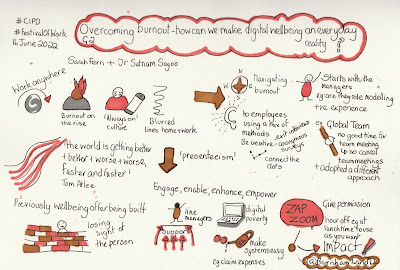 #CIPD
#FestivalOfWork
16 June 2022
Overcoming burnout - how can we make digital wellbeing an everyday
reality?
G2
Sarah Fern + Dr Satnam Sagoo
Work anywhere
Burnout on
the rise
'Always on'
culture
Blurred
lines home + work
N
Navigating
burnout
Starts with the
managers
eg are they role modelling
+ve experience
Listen
to employees
using a mix of
methods
Be creative - exit interviews
- anonymous
surveys
connect the
dots
eg Global Team
no good time for
team meeting
so so cancel
team meetings
+ adopted a different
approach
The world is getting better
+ better + worse + worse,
faster and faster'
Tom Atlee
'presenteeism'
Engage, enable, enhance, empower
Previously wellbeing often being built
losing
sight of
the person
line
managers
Support
digital
poverty
make
systems easy
eg claim expenses
ZAP
ZOOM
Give permission
hour off eg at
lunchtime to use
as you want
Impact